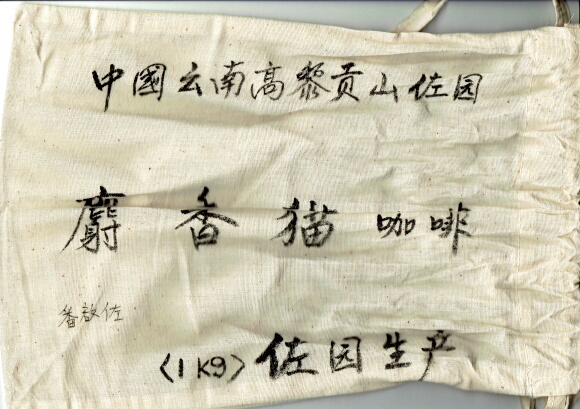 中國云南高黎贡山佐园
麝香猫咖啡
番啟佐
(1Kg)佐园生产